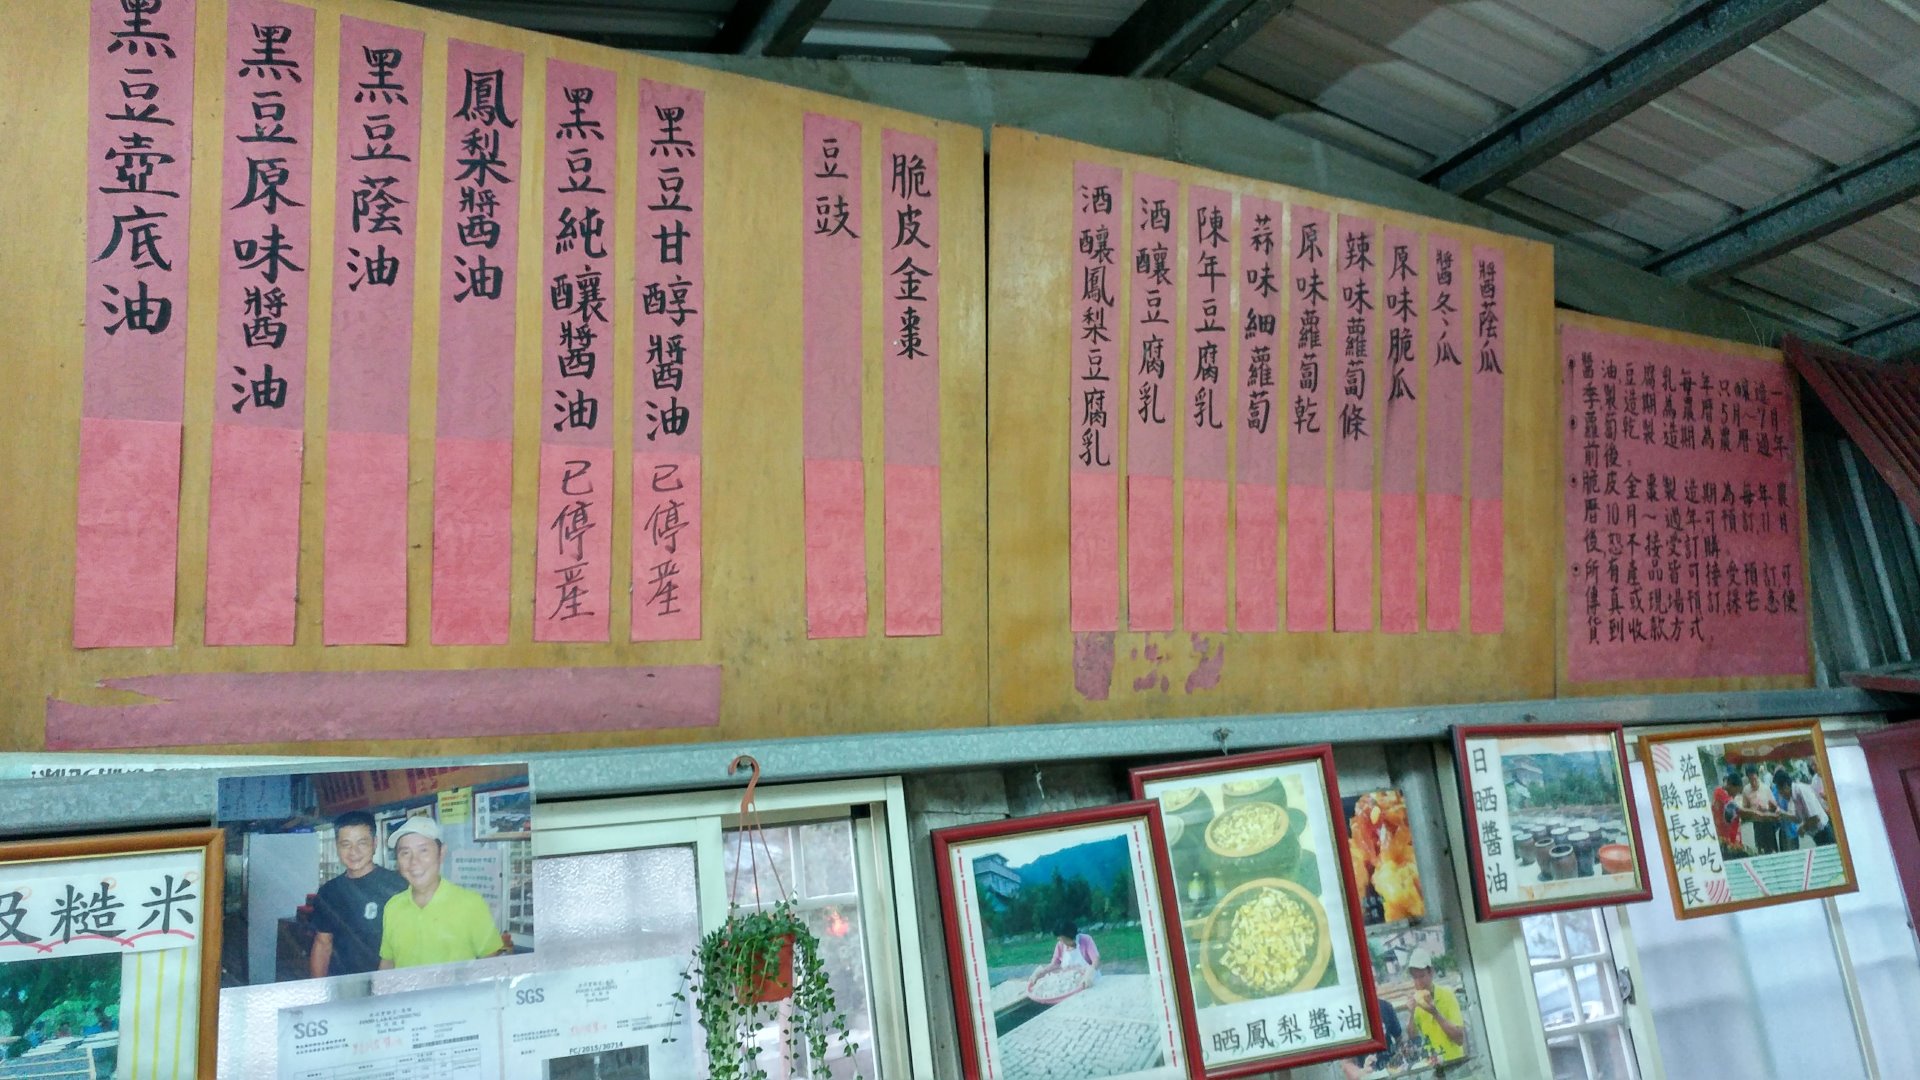 黑豆壺底油
黑豆原味醬油
黑豆蔭油
鳳梨醬油
黑豆純釀醬油 已停產
黑豆甘醇醬油 已停產
豆豉
脆皮金棗
酒釀鳳梨豆腐乳
酒釀豆腐乳
陳年豆腐乳
蒜味細蘿蔔
原味蘿蔔乾
辣味蘿蔔條
原味脆瓜
醬冬瓜
醬蔭瓜
醬油、豆腐乳每年只釀造一
季製造期為農曆5月~7月
蘿蔔乾製造期為農曆過年
前後。
脆皮金棗製造期為每年農
曆10月~過年可預訂,11月
後恕不接受訂購。
所有產品皆可接受預訂可
傳真或現場預訂,採宅急便
貨到收款方式。
及糙米
SGS
FOOD LAB-KAOHSIUNG
Test Report
SGS
Test Report
FC/2015/30714
晒鳳梨醬油
日晒醬油
蒞臨試吃
縣長鄉長